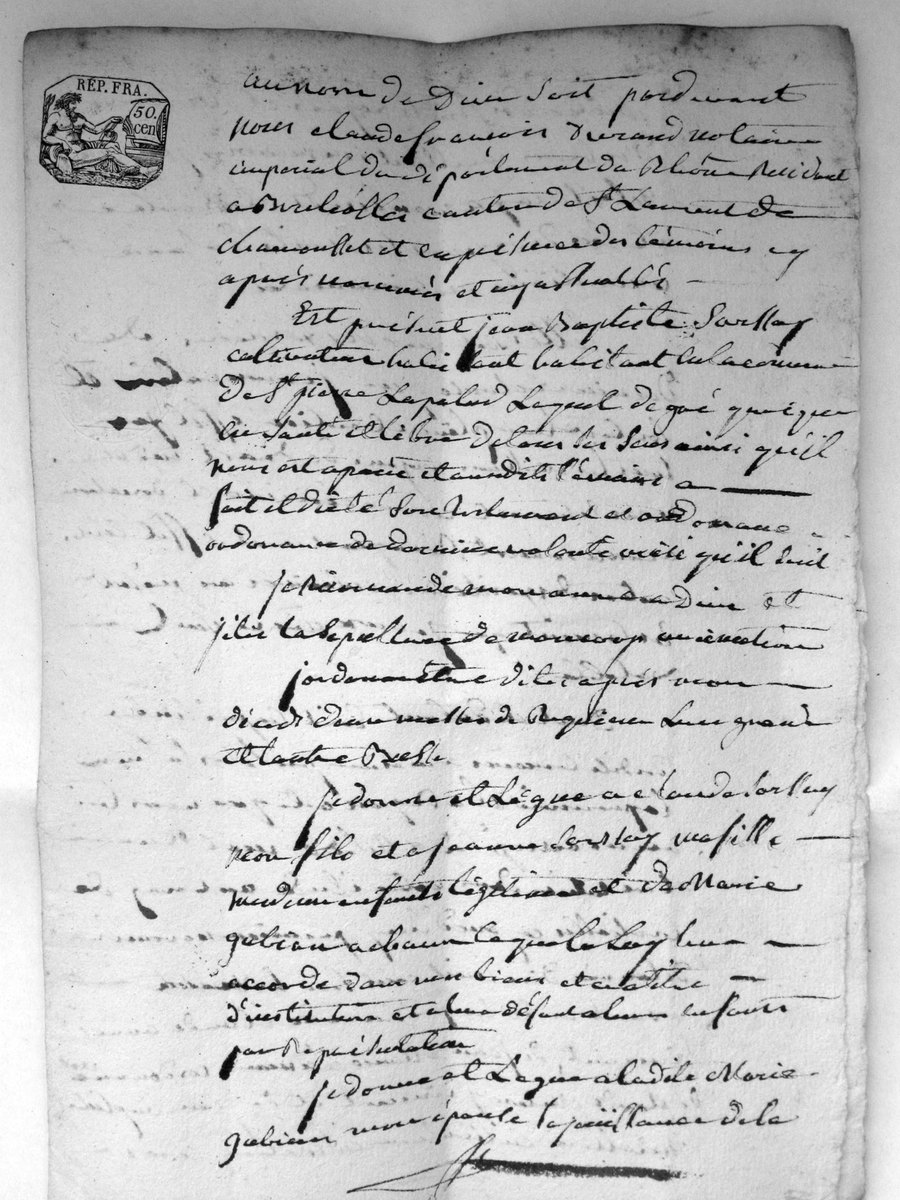 RÉP. FRA.
50. cen
au nom de Dieu soit pardevant
nous claude françois Durand notaire
imperial du département du Rhône Résidant
a canton de St Laurent de
chamousset et en présence des témoins cy
après nommés et
Est présent jean Baptiste Sorssay
cultivateur habitant habitant en la commune
de St pierre Lapalud Lequel de gré quoique
en santé et libre de tous ses sens ainsi qu'il
nous est aparu et auxdits témoins a
fait et dicté son testament et ordonnance
ordonnance de derniere volonté ainsi qu'il suit
je Récomande mon ame a Dieu et
la sepulture de mon corp
jordonne être dites après mon
décès deux messes de Requiem Lune grande
et lautre Basse
je donne et Lègue a claude Sorssay
mon fils et a jeanne Sorssay ma fille
mes deux enfants légitimes et de Marie
gabian a chacun ce que la Loy leur
accorde dans mes biens et a titre
d'institution et a leur défaut a leurs enfants
par Représentation
je donne et Lègue a ladite Marie
gabian mon épouse la joüissance de la